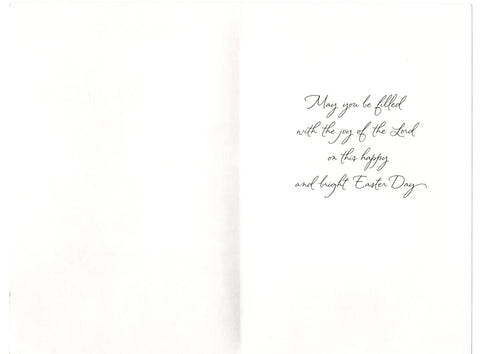 May you be filled
with the joy of the Lord
on this happy
and bright Easter Day